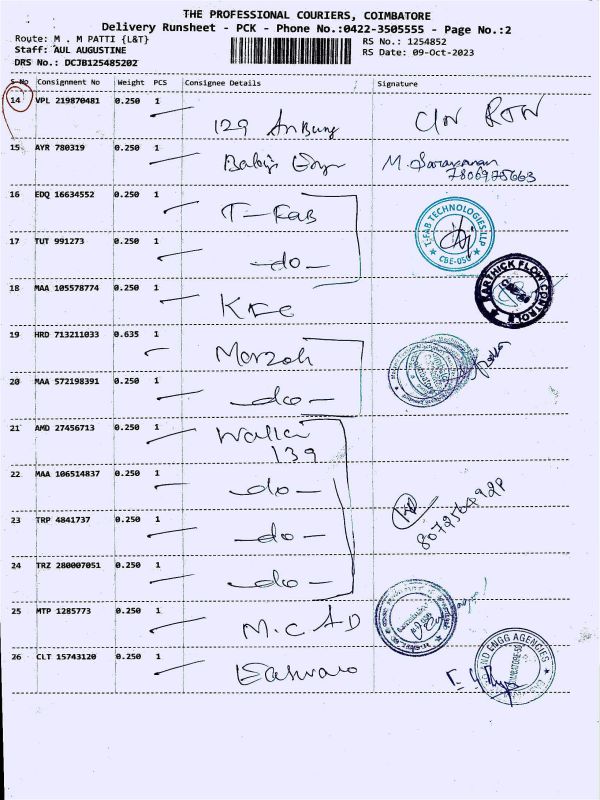 THE PROFESSIONAL COURIERS, COIMBATORE
Delivery Runsheet - PCK - Phone No.:0422-3505555 - Page No.:2
Route: M . M PATTI {L&T}
RS No.: 1254852
Staff: AUL AUGUSTINE
RS Date: 09-Oct-2023
DRS No.: DCJB125485202
S No Consignment No Weight PCS Consignee Details Signature
14 VPL 219870481 0.250 1
129
15 AYR 780319 0.250 1
M. Saravanan
7806975663
16 EDQ 16634552 0.250 1
T-Fab
T-FAB TECHNOLOGIES LLP
CBE-050
17 TUT 991273 0.250 1
-do-
18 MAA 105578774 0.250 1
KFC
KARTHICK FLOW CONTROLS
19 HRD 713211033 0.635 1
Marzoli
20 MAA 572198391 0.250 1
-do-
21 AMD 27456713 0.250 1
139
22 MAA 106514837 0.250 1
-do-
8072564928
23 TRP 4841737 0.250 1
-do-
24 TRZ 280007051 0.250 1
-do-
25 MTP 1285773 0.250 1
M.C AD
26 CLT 15743120 0.250 1
Easwara
AND ENGG AGENCIES